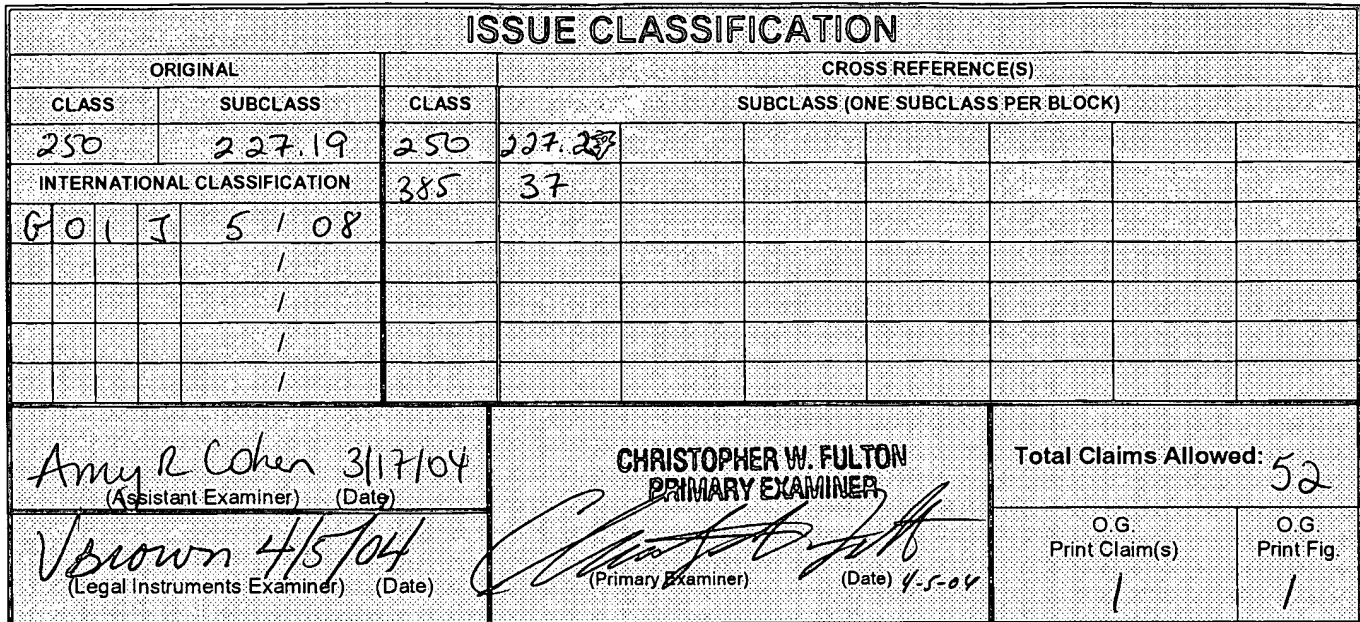 ISSUE CLASSIFICATION
ORIGINAL CROSS REFERENCE(S)
CLASS SUBCLASS CLASS SUBCLASS (ONE SUBCLASS PER BLOCK)
250 227.19 250
INTERNATIONAL CLASSIFICATION 385 37
G 0 1 J 5 / 08
/
/
/
/
Amy R Cohen 3/17/04
(Assistant Examiner) (Date)
VBrown 4/5/04
(Legal Instruments Examiner) (Date)
CHRISTOPHER W. FULTON
PRIMARY EXAMINER
(Primary Examiner) (Date) 4-5-04
Total Claims Allowed: 52
O.G.
Print Claim(s)
1
O.G.
Print Fig.
1